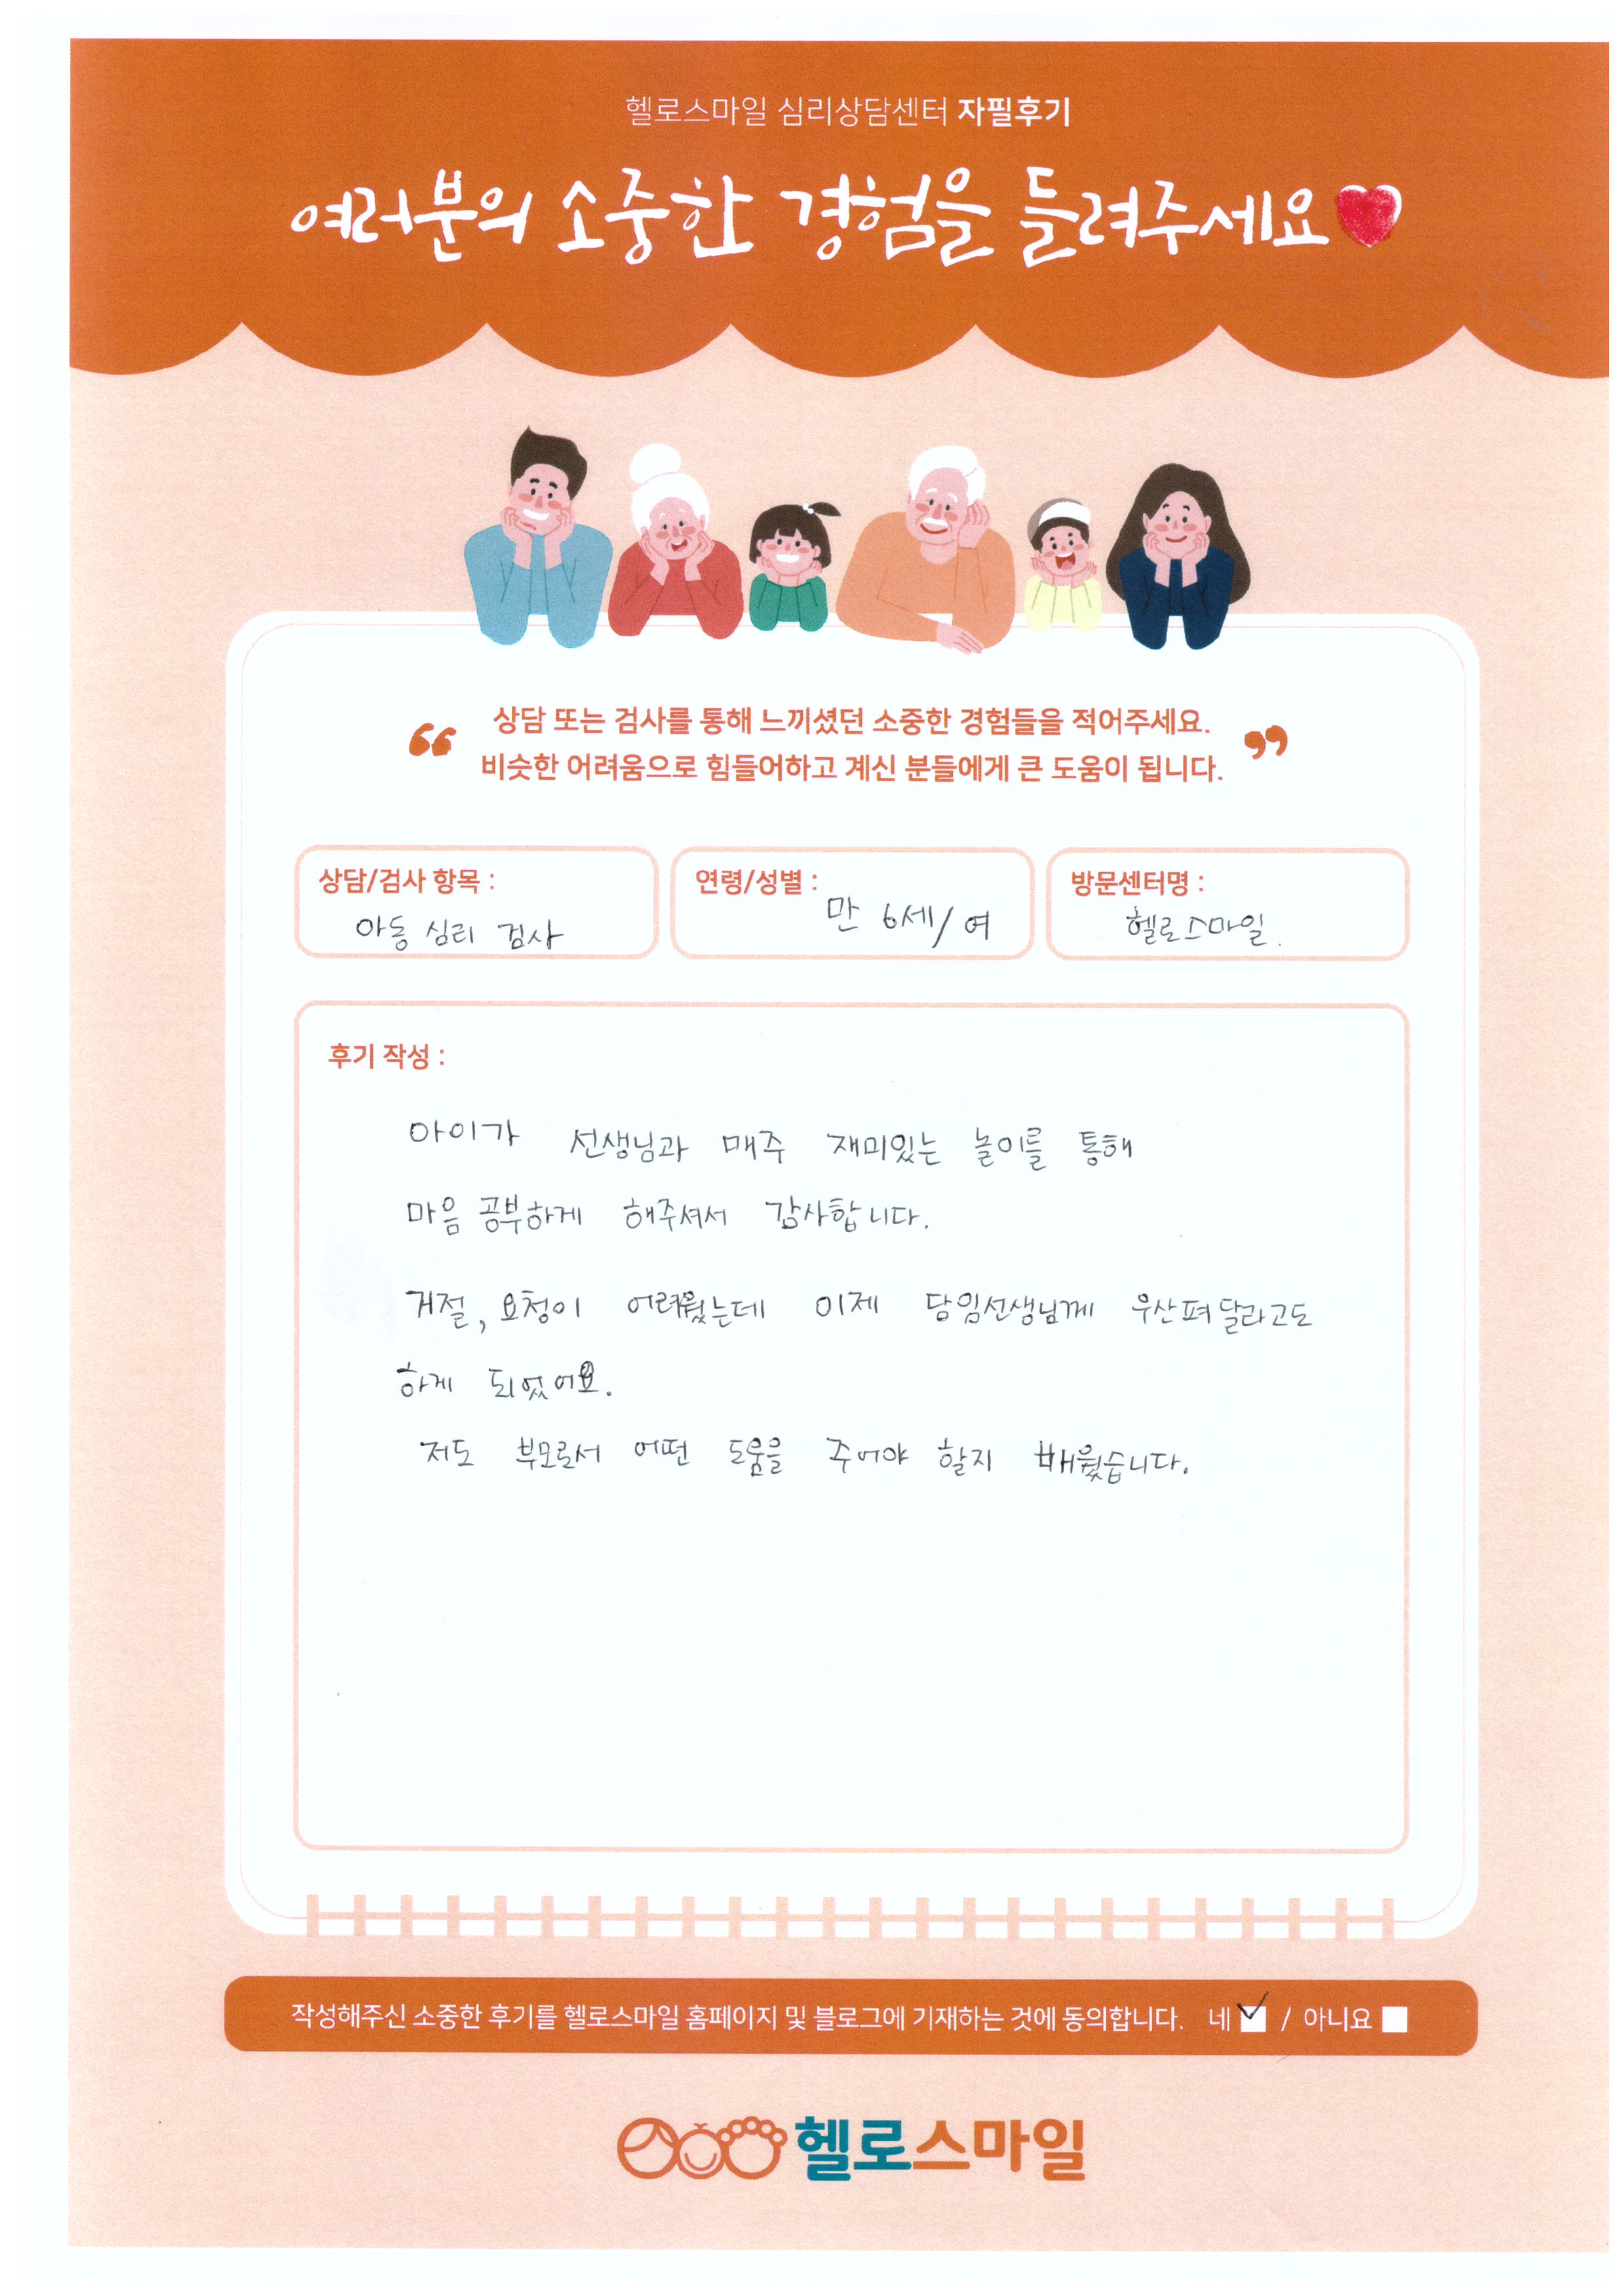 헬로스마일 심리상담센터 자필후기
여러분의 소중한 경험을 들려주세요
“ 상담 또는 검사를 통해 느끼셨던 소중한 경험들을 적어주세요. ”
비슷한 어려움으로 힘들어하고 계신 분들에게 큰 도움이 됩니다.
상담/검사 항목 :
아동 심리 검사
연령/성별 :
만 6세/여
방문센터명 :
헬로스마일.
후기 작성 :
아이가 선생님과 매주 재미있는 놀이를 통해
마음 공부하게 해주셔서 감사합니다.
거절, 요청이 어려웠는데 이제 담임선생님께 우산펴달라고도
하게 되었어요.
저도 부모로서 어떤 도움을 주어야 할지 배웠습니다.
작성해주신 소중한 후기를 헬로스마일 홈페이지 및 블로그에 기재하는 것에 동의합니다. 네 / 아니요
헬로스마일